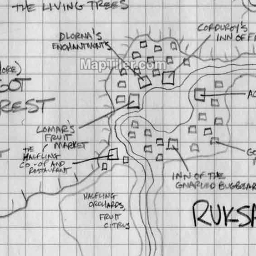 THE LIVING TREES
DLORNA'S
ENCHANTMENTS
CORDUROY'S
INN OF
MapTiler.com
REST
LOMAR'S
FRUIT
MARKET
THE
HALFLING
CO-OP AND
RESTAURANT
INN OF THE
GNARLED BUGBEAR
HALFLING
ORCHARDS,
FRUIT
CITRUS
RUKSA